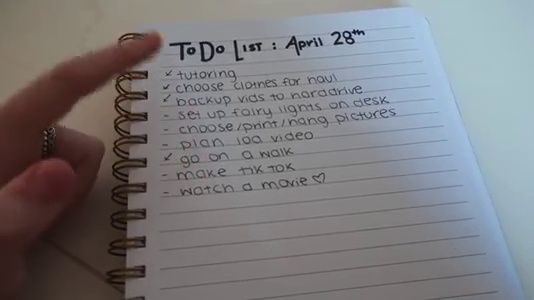 To Do List : April 28th
✓ tutoring
✓ choose clothes for haul
✓ backup vids to harddrive
- set up fairy lights on desk
- choose/print/hang pictures
- plan 100 video
✓ go on a walk
- make tik tok
- watch a movie ♡